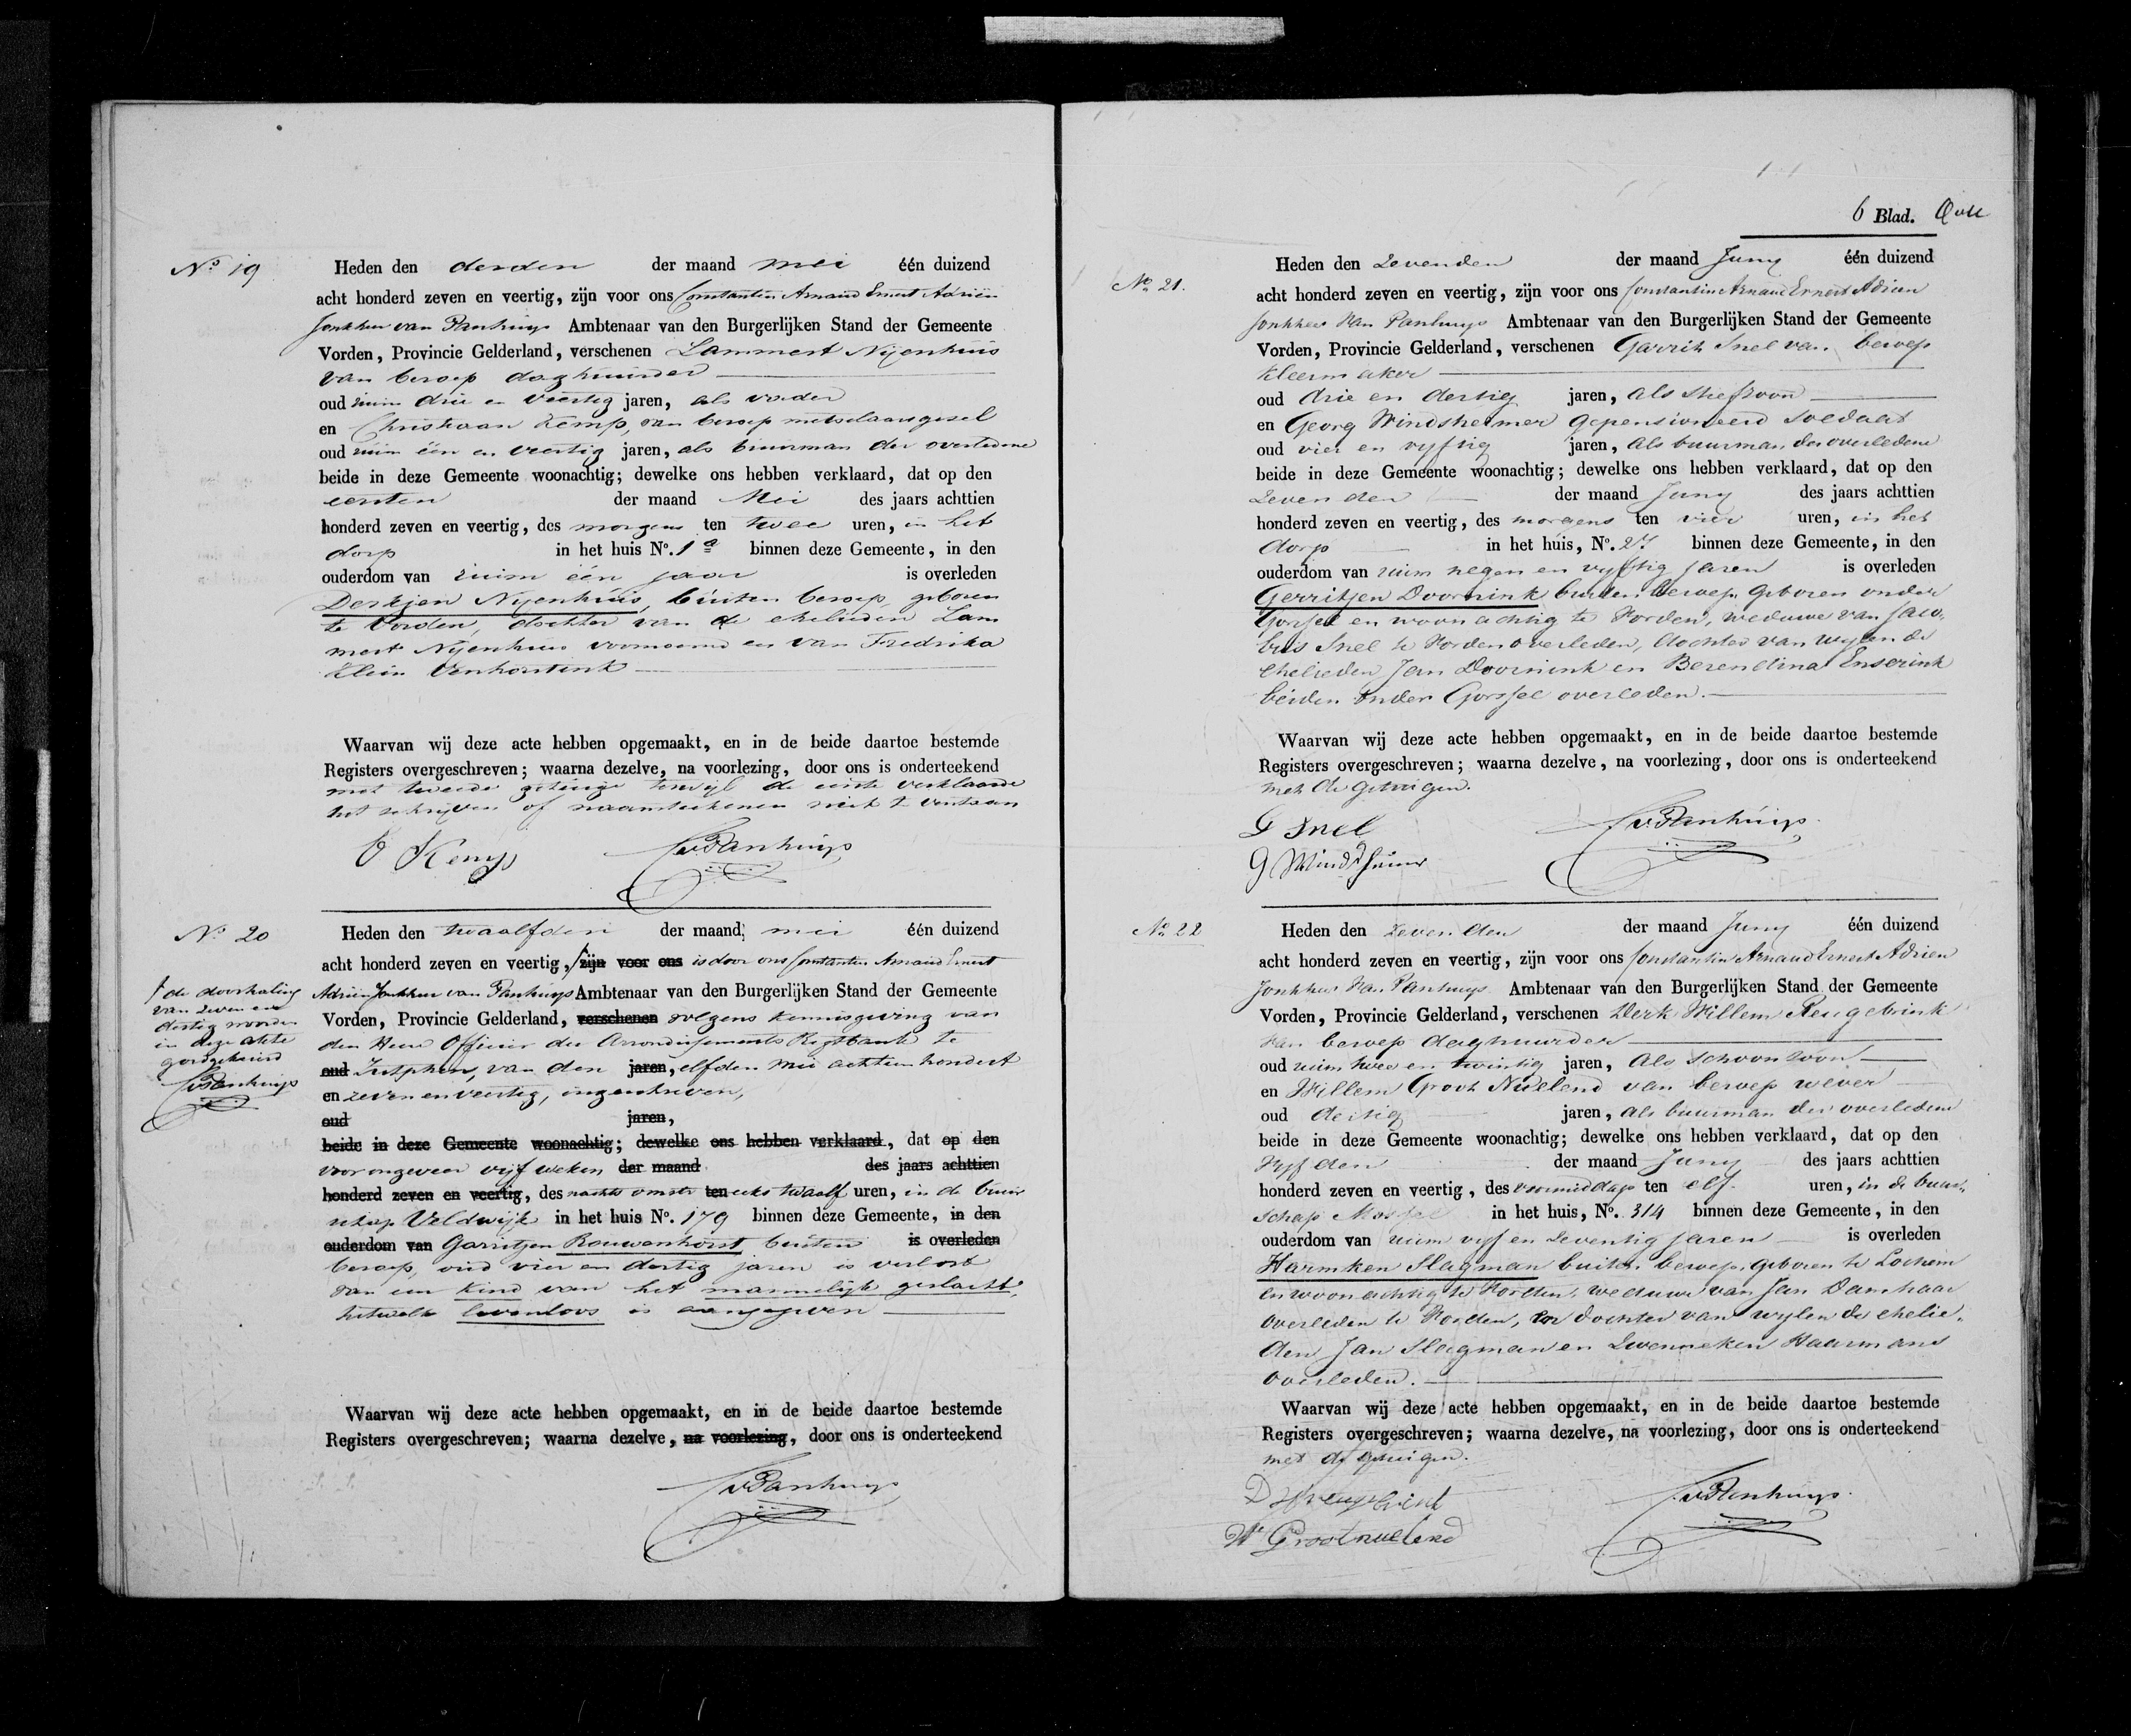 No 19
Heden den derden der maand mei één duizend
acht honderd zeven en veertig, zijn voor ons Constantin Arnaud Ernest Adriën
Jonkheer van Panhuys Ambtenaar van den Burgerlijken Stand der Gemeente
Vorden, Provincie Gelderland, verschenen Lammert Nijenhuis
van beroep daghuurder
oud ruim drie en veertig jaren, als vader
en Christiaan Kemp, van beroep metselaarsgesel
oud ruim één en veertig jaren, als buurman der overledene
beide in deze Gemeente woonachtig; dewelke ons hebben verklaard, dat op den
eersten der maand Mei des jaars achttien
honderd zeven en veertig, des morgens ten twee uren, in het
dorp in het huis No. 1a binnen deze Gemeente, in den
ouderdom van ruim één jaar is overleden
Derkjen Nijenhuis, buiten beroep, geboren
te Vorden, dochter van de ehelieden Lam
mert Nijenhuis voornoemd en van Fredrika
Klein Venhorstink
Waarvan wij deze acte hebben opgemaakt, en in de beide daartoe bestemde
Registers overgeschreven; waarna dezelve, na voorlezing, door ons is onderteekend
met tweede getuige terwijl de eerste verklaarde
het schrijven of naamteekenen niet te verstaan
C Kemp CvPanhuijs
No 20
Heden den twaalfden der maand mei één duizend
acht honderd zeven en veertig, zijn voor ons is door ons Constantin Arnaud Ernest
Adriën Jonkheer van Panhuys Ambtenaar van den Burgerlijken Stand der Gemeente
Vorden, Provincie Gelderland, verschenen volgens kennisgeving van
den Heer Officier der Arrondissements Regtbank te
oud Zutphen, van den jaren, elfden mei achttien hondert
en zeven en veertig, ingeschreven,
oud jaren,
beide in deze Gemeente woonachtig; dewelke ons hebben verklaard, dat op den
voor ongeveer vijf weken der maand des jaars achttien
honderd zeven en veertig, des nachts omstr ten eeks twaalf uren, in de buur
schap Veldwijk in het huis No. 179 binnen deze Gemeente, in den
ouderdom van Garritjen Rouwenhorst buiten is overleden
beroep, oud vier en dertig jaren is verlost
van een kind van het mannelijk geslacht,
hetwelk levenloos is aangegeven
Waarvan wij deze acte hebben opgemaakt, en in de beide daartoe bestemde
Registers overgeschreven; waarna dezelve, na voorlezing, door ons is onderteekend
CvPanhuys
de doorhaling
van zeven en
dertig woorden
in deze akte
goedgekeurd
CvPanhuijs
6 Blad.
No 21.
Heden den Zevenden der maand Juny één duizend
acht honderd zeven en veertig, zijn voor ons Constantin Arnaud Ernest Adrien
Jonkheer Van Panhuys Ambtenaar van den Burgerlijken Stand der Gemeente
Vorden, Provincie Gelderland, verschenen Garrit Snel van beroep
kleermaker
oud drie en dertig jaren, als Stiefzoon
en Georg Windsheimer gepensioneerd Soldaat
oud vier en vyftig jaren, als buurman der overledene
beide in deze Gemeente woonachtig; dewelke ons hebben verklaard, dat op den
Zevenden der maand Juny des jaars achttien
honderd zeven en veertig, des morgens ten vier uren, in het
dorp in het huis, No. 27 binnen deze Gemeente, in den
ouderdom van ruim negen en vyftig Jaren is overleden
Gerritjen Doornink buiten beroep, geboren onder
Gorssel en woonachtig te Vorden, weduwe van Jaco-
bus Snel te Vorden overleden, dochter van wylen de
Ehelieden Jan Doornink en Berendina Enserink
beiden onder Gorssel overleden.
Waarvan wij deze acte hebben opgemaakt, en in de beide daartoe bestemde
Registers overgeschreven; waarna dezelve, na voorlezing, door ons is onderteekend
met de getuigen.
G Snel CvPanhuijs
G Windsheimer
No 22
Heden den Zevenden der maand Juny één duizend
acht honderd zeven en veertig, zijn voor ons Constantin Arnaud Ernest Adrien
Jonkheer Van Panhuys Ambtenaar van den Burgerlijken Stand der Gemeente
Vorden, Provincie Gelderland, verschenen Derk Willem Reugebrink
van beroep daghuurder
oud ruim twee en twintig jaren, als Schoonzoon
en Willem Groot Nuelend van beroep wever
oud dertig jaren, als buurman der overledene
beide in deze Gemeente woonachtig; dewelke ons hebben verklaard, dat op den
Vyfden der maand Juny des jaars achttien
honderd zeven en veertig, des voormiddags ten elf uren, in de buur-
schap Mossel in het huis, No. 314 binnen deze Gemeente, in den
ouderdom van ruim vyf en Zeventig jaren is overleden
Harmken Slagman buiten beroep, geboren te Lochem
en woonachtig te Vorden, weduwe van Jan Damhaar
overleden te Vorden, en dochter van wylen de ehelie-
den Jan Slagman en Zwenneken Haarmans
overleden.
Waarvan wij deze acte hebben opgemaakt, en in de beide daartoe bestemde
Registers overgeschreven; waarna dezelve, na voorlezing, door ons is onderteekend
met de getuigen.
D W Reugebrink CvPanhuys
Wm Grootnuelend